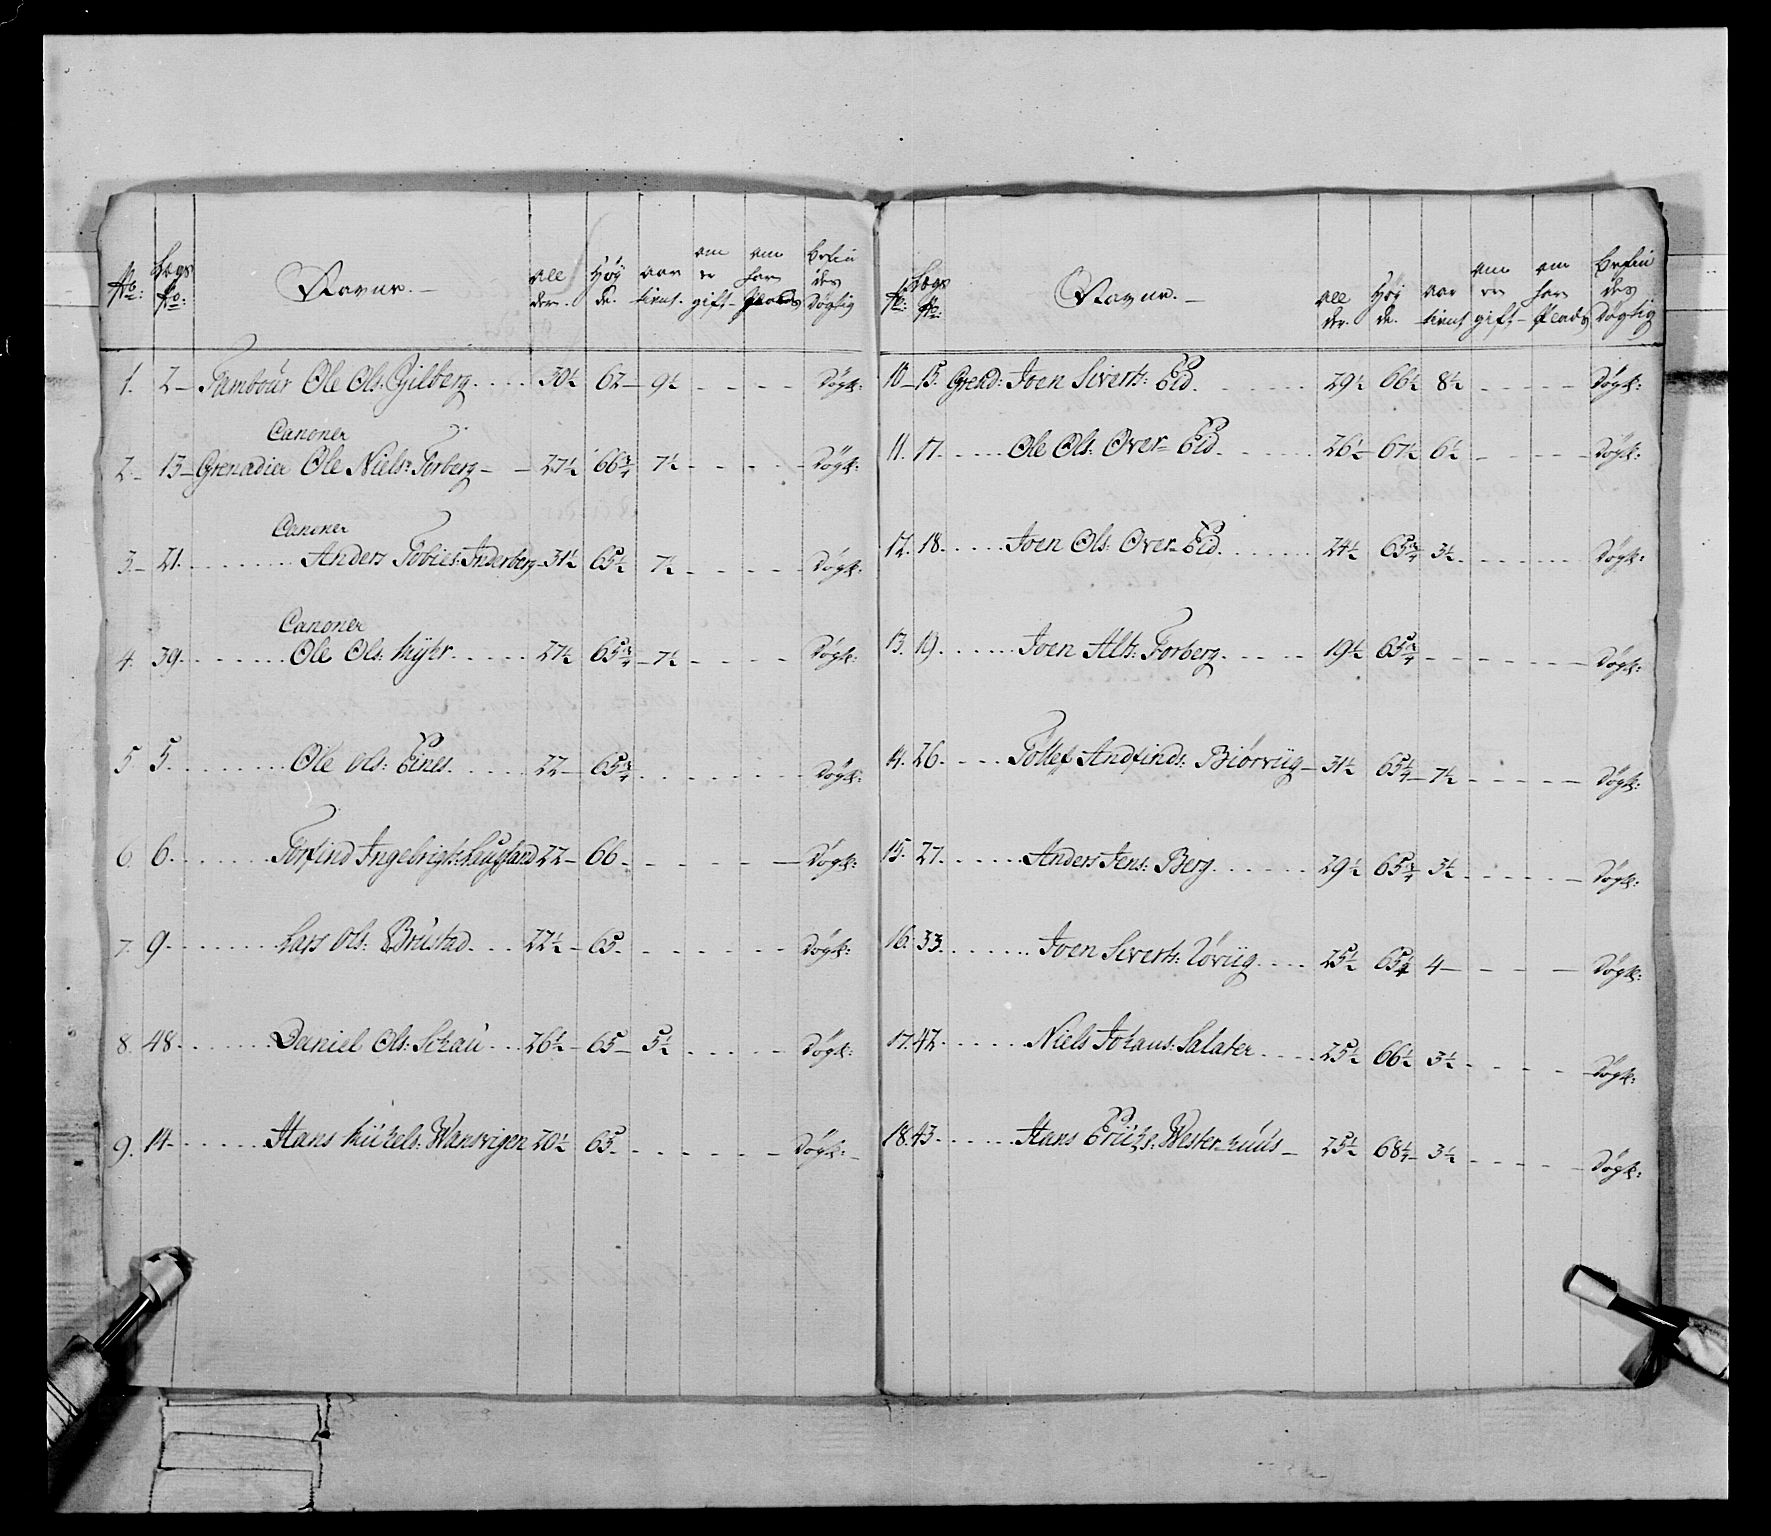 No: Legs No: Navne. — all der. Høy de. aar tient. om er gift – om har Plads befin des Døgtig
1. 2 – Tambour Ole Ols: Gilberg . . . . 30½ 62 – 9½ – – – – Døgt:
Canoner
2 – 13 – Grenadier Ole Niels: Forberg – – 27½ 66¾ 7½ – – – – – Døgt:
Canoner
3 – 21. . . . . . . . Anders Tobies: Inderberg – 31½ 65½ 7½ – – – – – Døgt:
Canoner
4. 39. . . . . . . . Ole Ols: Myhr . . . . . 27½ 65¾ – 7½ – – – – Døgt:
5 5. . . . . . . . . Ole Ols: Eines . . . . . 22 – 65¾ . . . . . . . Døgt:
6. 6. . . . . . . . Torfind Ingebrigts: Laugsand 22 – 66. – – – – – Døgt:
7. 9. . . . . . . . Lars Ols: Brustad. . . . 22½ – 65. – – – – – Døgt:
8. 48. . . . . . . Daniel Ols: Schau . . . 26½ – 65 – 5½ – – – – Døgt:
9. 14 – . . . . . . Hans Michels: Wansvigen 20½ 65. – – – – – Døgt: –
No: Legs No: Navne. — all der. Høy de. aar tient om er gift – om har Plads befin des Døgtig
10 – 15. Grend: Joen Siverts: Eid. . . . . . . 29½ 66½ 8½ – – – – – Døgt:
11. 17. . . . . Ole Ols: Over – Eid. . . . . . 26½ – 67½ 6½ – – – – – Døgt:
12. 18. . . . . Joen Ols: Over – Eid. . . . . . 24½ 65¾ 3½ . . . . . . Døgt:
13. 19. . . . . . Joen Alb: Forberg . . . . . 19½ 65¾ – – – – – – – Døgt:
14. 26. . . . . Tollef Andfinds: Biørviig – 31½ 65¼ – 7½ – – – – – Døgt:
15. 27. . . . . . Anders Jens: Berg. . . . . . 29½ 65¾ 3½ . . . . . – Døgt:
16. 33. . . . . . . Joen Siverts: Løviig . . . 25½ 65¼ 4 – – – – – Døgt:
17. 42. . . . . . Niels Johans: Salater . . . . 25½ 66½ 3½ . – – – – Døgt:
18. 43. . . . . . Hans Erichs: Wester – huus – 25½ 68¼ – 3½ – – – – – Døgt: